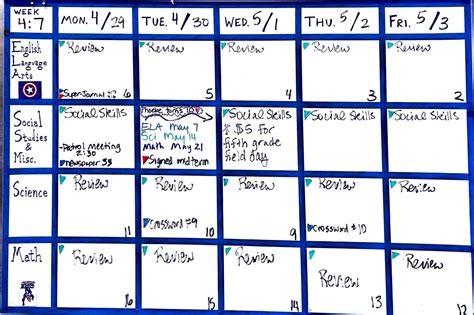 WEEK 4:7
MON. 4/29
TUE. 4/30
WED. 5/1
THU. 5/2
FRI. 5/3
English
Language
Arts
Review
Super Journal 12 6
Review
5
Review
4
Review
3
Review
2
Social
Studies
&
Misc.
Social Skills
Patrol meeting
2:30
newspaper 33
Phoebe
ELA May 7
Sci May 14
Math May 21
Signed midterm
Social Skills
* $5 for
fifth grade
field day
Social Skills
Social Skills
Science
Review
11
Review
Crossword #9
10
Review
9
Review
Crossword #10
Review
Math
Review
16
Review
15
Review
14
Review
13
Review
12